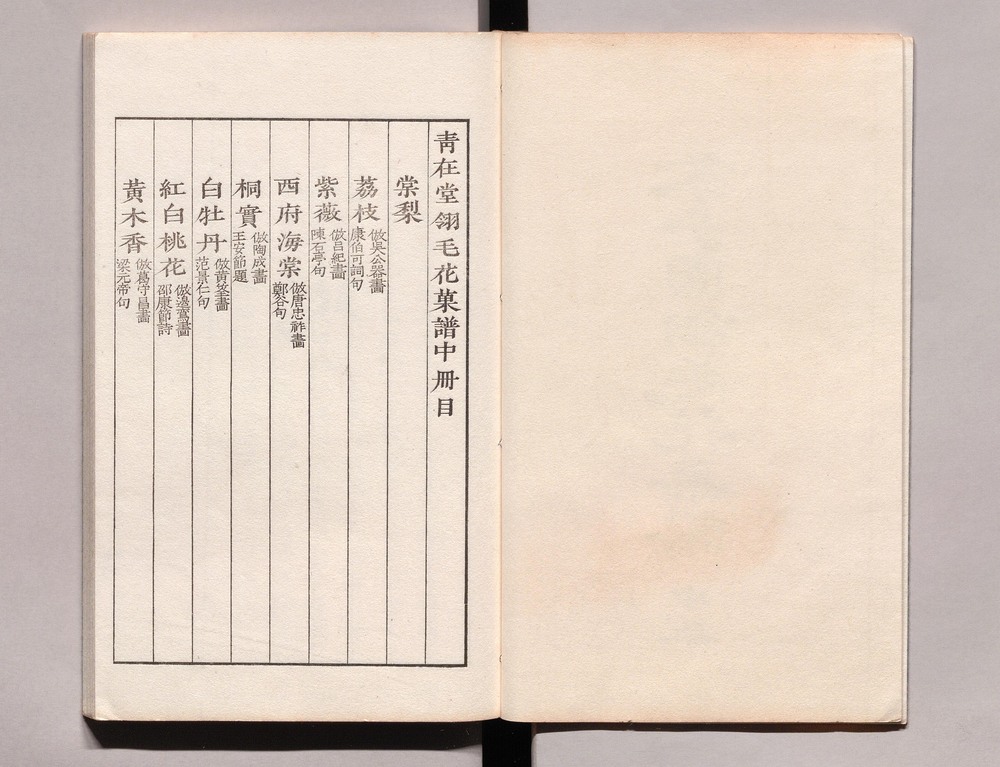 靑在堂翎毛花菓譜中冊目
棠梨
荔枝 倣吳公器畫 康伯可詞句
紫薇 倣呂紀畫 陳石亭句
西府海棠 倣唐忠祚畫 鄭谷句
桐實 倣陶成畫 王安節題
白牡丹 倣黃筌畫 范景仁句
紅白桃花 倣邊鸞畫 邵康節詩
黃木香 倣葛守昌畫 梁元帝句